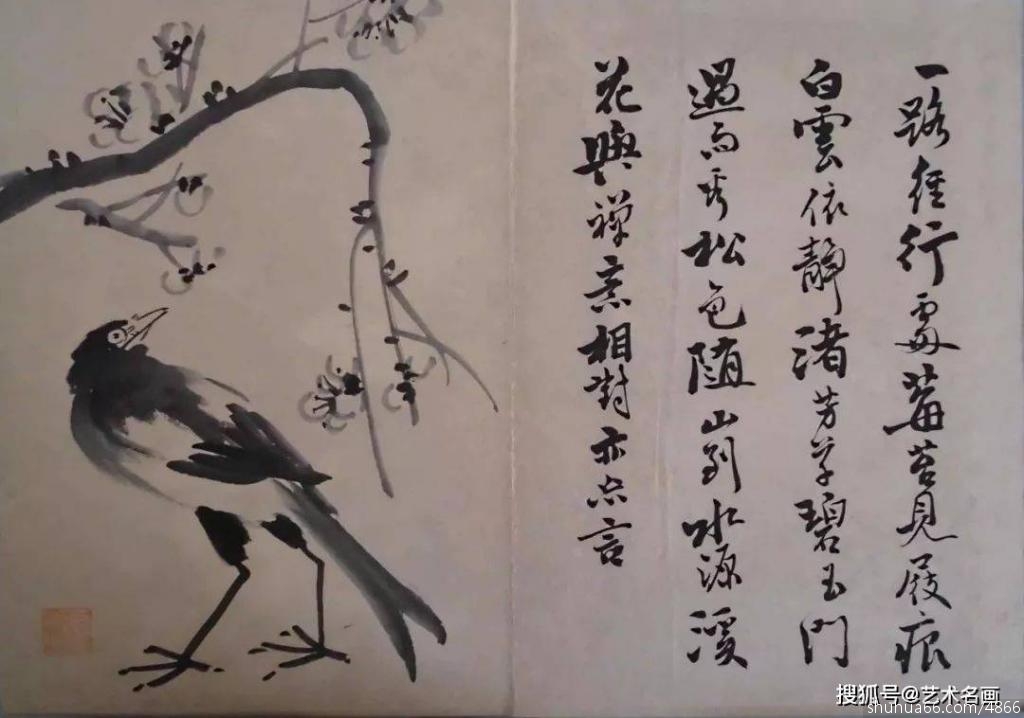 一路徑行處莓苔見屐痕
白雲依靜渚芳草碧玉門
過雨看松色随山到水源溪
花與禪意相對亦忘言
搜狐号@艺术名画
shuhua66.com/4866